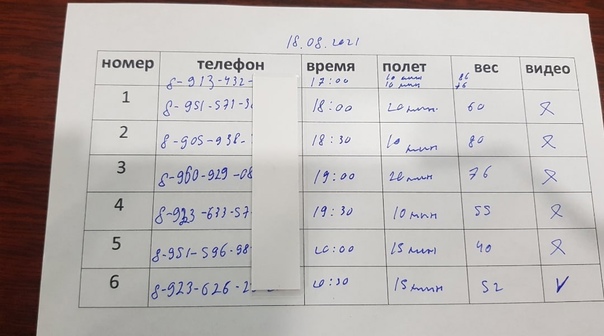 18.08.2021
номер телефон время полет вес видео
8-913-432- 17:00 10 мин 86
10 мин 76
1 8-951-571-3 18:00 20 мин. 60 X
2 8-905-938- 18:30 10 мин 80 X
3 8-960-929-08 19:00 20 мин 76 X
4 8-923-633-57 19:30 10 мин 55 X
5 8-951-596-98 20:00 15 мин 40 X
6 8-923-626-2 20:30 15 мин 52 V